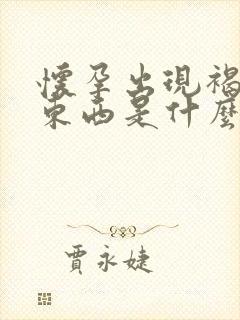 懷孕出現褐
東西是什麼
賈永婕